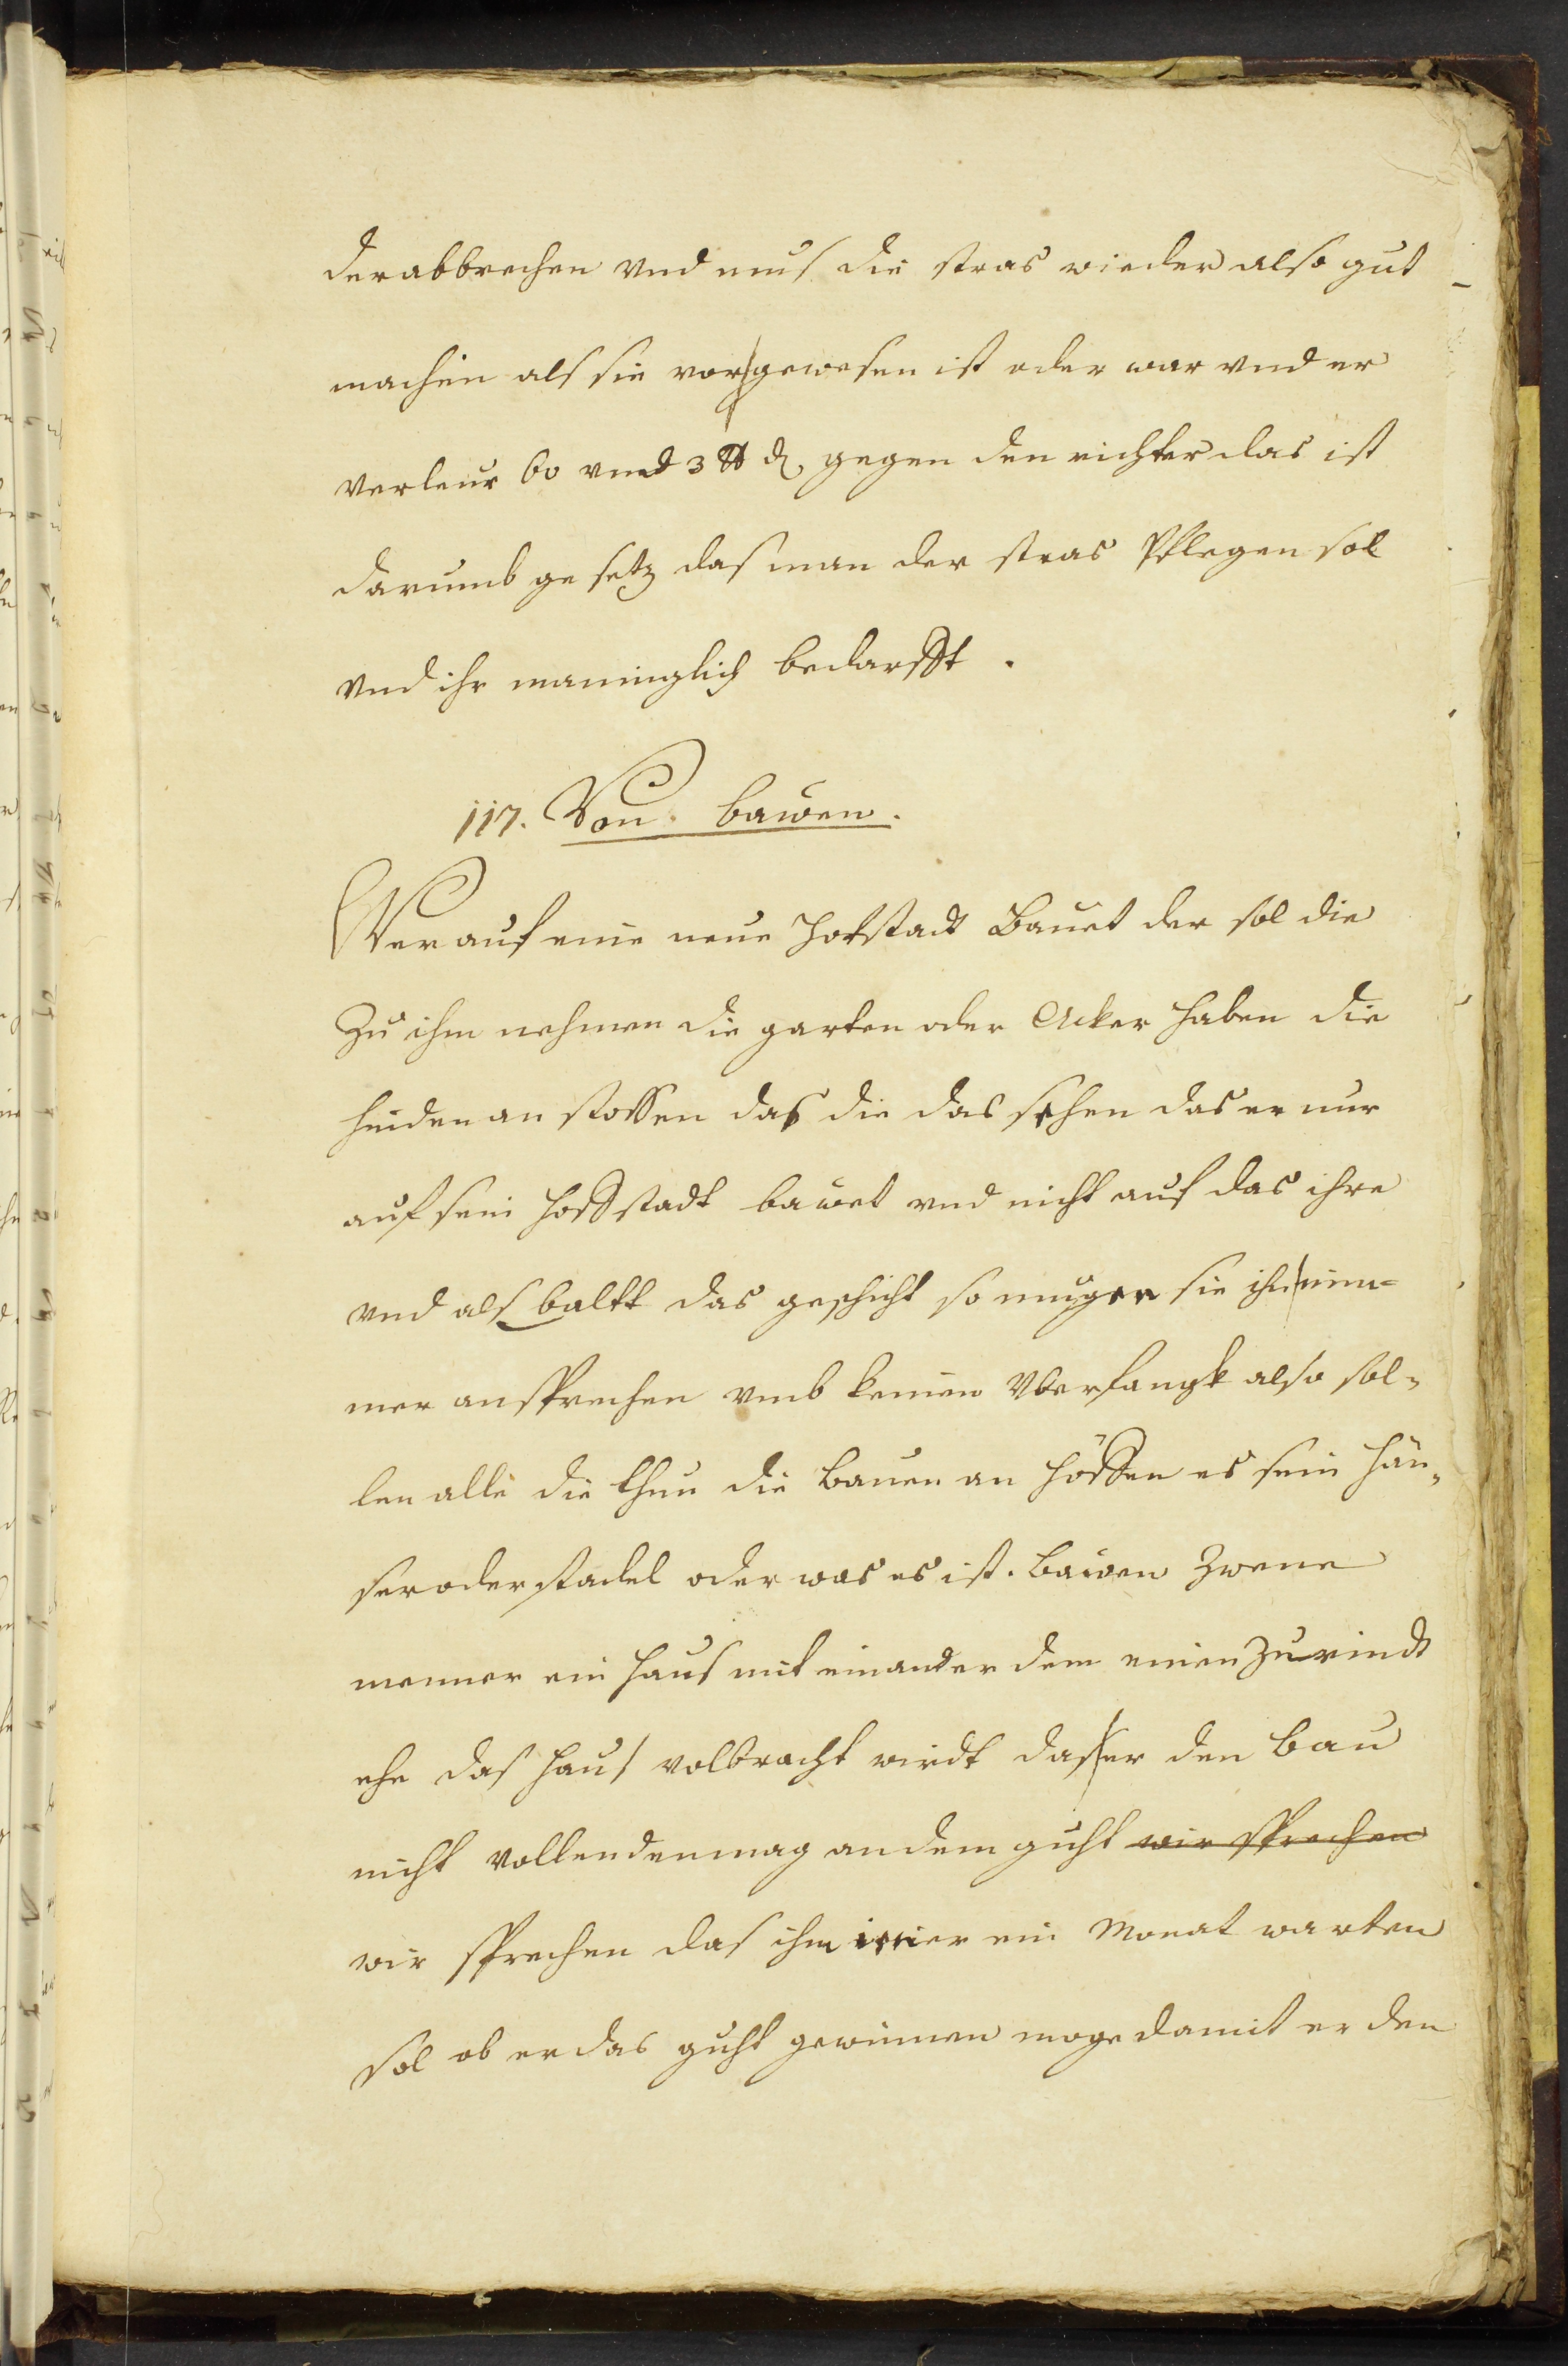 der abbrechen vnd mus die stras wieder also gut
machen als sie vor gewesen ist oder war vnd er
verleur 60 vnd 3 ℔ ₰ gegen den richter das ist
darumb ge setz das man der stras Pflegen sol
vnd ihr manniglich bedarfft.
117. Von bawen.
Wer auf eine neue Hofstadt Bauet der sol die
Zu ihm nehmen die garten oder Acker haben die
hinden an stossen das die das sehen das er nur
auf sein hoffstadt bawet vnd nicht auf das ihre
vnd als baltt das geschicht so mugen sie ihn nim=
mer ansprechen vmb keinen Vberfangk also sol=
len alle die thun die bauen an höffen es sein häu=
ser oder stadel oder was es ist. bawen Zwene
menner ein haus mit einander dem einen Zurindt
ehe das haus volbracht wirdt das er den bau
nicht vollenden mag an dem guht wir sprechen
wir sprechen das ihm iener ein Monat warten
sol ob er das guht gewinnen moge damit er den